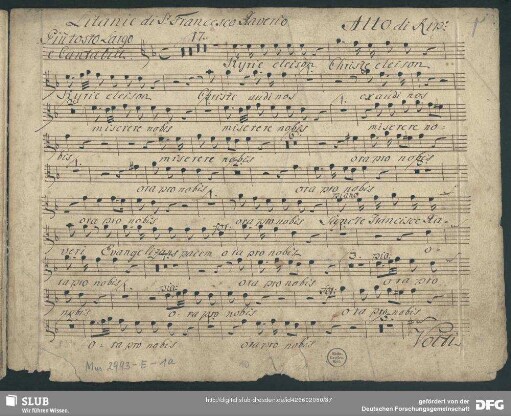 Litanie di S. Francesco Xaverio Alto di Rip:
Piu tosto Largo
e Cantabile 17.
Kyrie eleison Christe eleison
Kyrie eleison Christe audi nos exaudi nos
miserere nobis miserere nobis miserere no-
bis miserere nobis ora pro nobis
ora pro nobis
ora pro nobis ora pro nobis Sancte Francisce Xa-
veri Evange pacem ora pro nobis o-
ra pro nobis ora pro nobis ora pro
nobis o-ra pro nobis ora pro nobis
o-ra pro nobis ora pro nobis Volti
Mus 2993-E-1a
SLUB
Wir führen Wissen.
gefördert von der
Deutschen Forschungsgemeinschaft
DFG